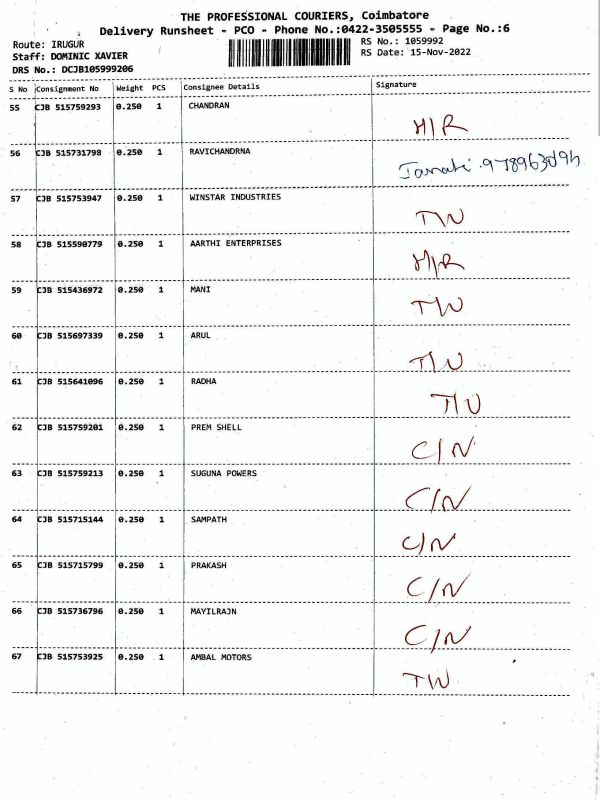 THE PROFESSIONAL COURIERS, Coimbatore
Delivery Runsheet - PCO - Phone No.:0422-3505555 - Page No.:6
Route: IRUGUR
RS No.: 1059992
Staff: DOMINIC XAVIER
RS Date: 15-Nov-2022
DRS No.: DCJB105999206
S No Consignment No Weight PCS Consignee Details Signature
55 CJB 515759293 0.250 1 CHANDRAN
H/R
56 CJB 515731798 0.250 1 RAVICHANDRNA
57 CJB 515753947 0.250 1 WINSTAR INDUSTRIES
58 CJB 515590779 0.250 1 AARTHI ENTERPRISES
H/R
59 CJB 515436972 0.250 1 MANI
60 CJB 515697339 0.250 1 ARUL
61 CJB 515641096 0.250 1 RADHA
62 CJB 515759201 0.250 1 PREM SHELL
C/N
63 CJB 515759213 0.250 1 SUGUNA POWERS
C/N
64 CJB 515715144 0.250 1 SAMPATH
C/N
65 CJB 515715799 0.250 1 PRAKASH
C/N
66 CJB 515736796 0.250 1 MAYILRAJN
C/N
67 CJB 515753925 0.250 1 AMBAL MOTORS